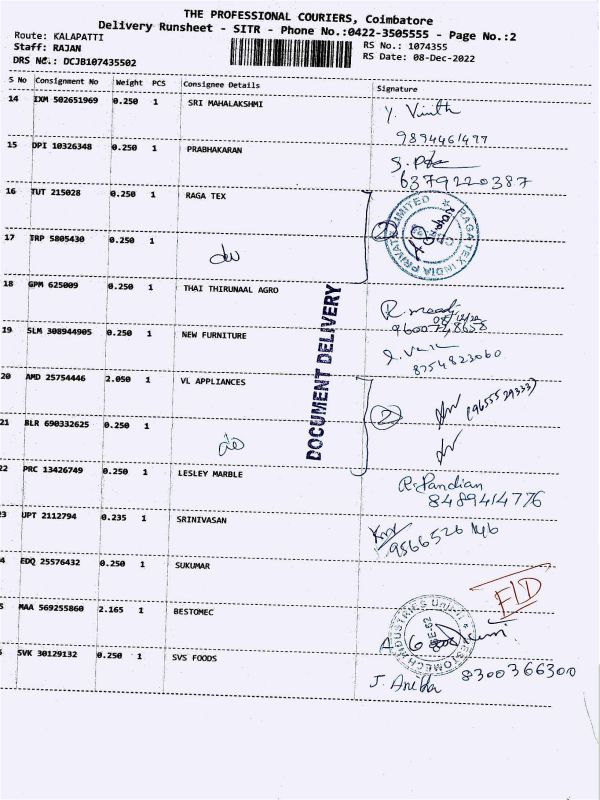 THE PROFESSIONAL COURIERS, Coimbatore
Delivery Runsheet - SITR - Phone No.:0422-3505555 - Page No.:2
Route: KALAPATTI
Staff: RAJAN
DRS No.: DCJB107435502
RS No.: 1074355
RS Date: 08-Dec-2022
S No Consignment No Weight PCS Consignee Details Signature
14 IXM 502651969 0.250 1 SRI MAHALAKSHMI
9894461477
15 DPI 10326348 0.250 1 PRABHAKARAN
6379220387
16 TUT 215028 0.250 1 RAGA TEX
RAGA TEX INDIA PRIVATE LIMITED
17 TRP 5805430 0.250 1 do
18 GPM 625009 0.250 1 THAI THIRUNAAL AGRO
DOCUMENT DELIVERY
19 SLM 308944905 0.250 1 NEW FURNITURE
8754823060
20 AMD 25754446 2.050 1 VL APPLIANCES
2
21 BLR 690332625 0.250 1 do
22 PRC 13426749 0.250 1 LESLEY MARBLE
R. Pandian
8489414776
23 UPT 2112794 0.235 1 SRINIVASAN
9566526146
4 EDQ 25576432 0.250 1 SUKUMAR
5 MAA 569255860 2.165 1 BESTOMEC
BESTOMECH INDUSTRIES Unit
SVK 30129132 0.250 1 SVS FOODS
8300366300